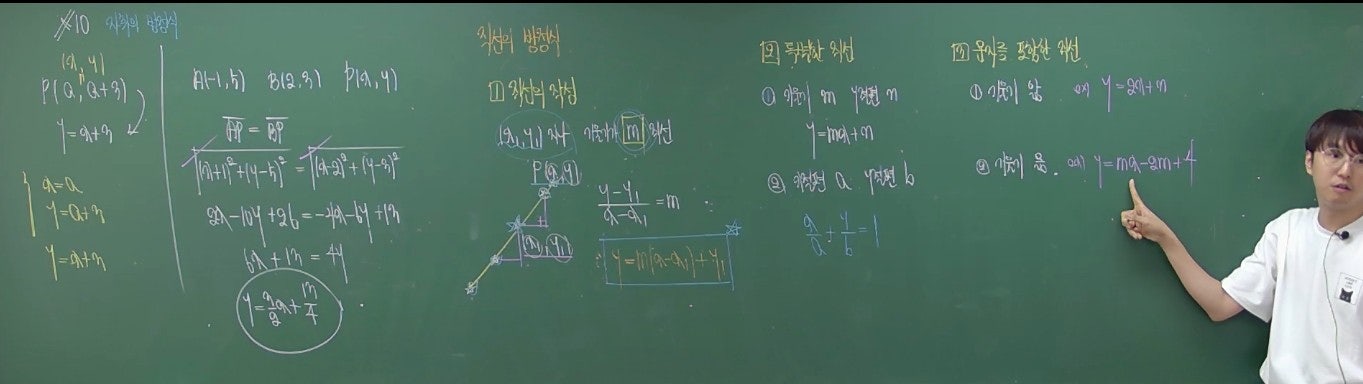 #10 자취의 방정식
(x, y)
P(a, a+3)
y=x+3
x=a
y=a+3
y=x+3
A(-1,5) B(2,3) P(x,y)
AP = BP
√(x+1)²+(y-5)² = √(x-2)²+(y-3)²
2x-10y+26=-4x-6y+13
6x+13=4y
y=3/2x+13/4
직선의 방정식
1 직선의 작성
(x₁,y₁) 지나 기울기가 m 직선
P(x,y)
(x₁,y₁)
y-y₁/x-x₁=m
y=m(x-x₁)+y₁
2 특별한 직선
① 기울기 m y절편 n
y=mx+n
② x절편 a y절편 b
x/a+y/b=1
3 문자를 포함한 직선
① 기울기 앎 ex) y=2x+n
② 기울기 모름. ex) y=mx-2m+4